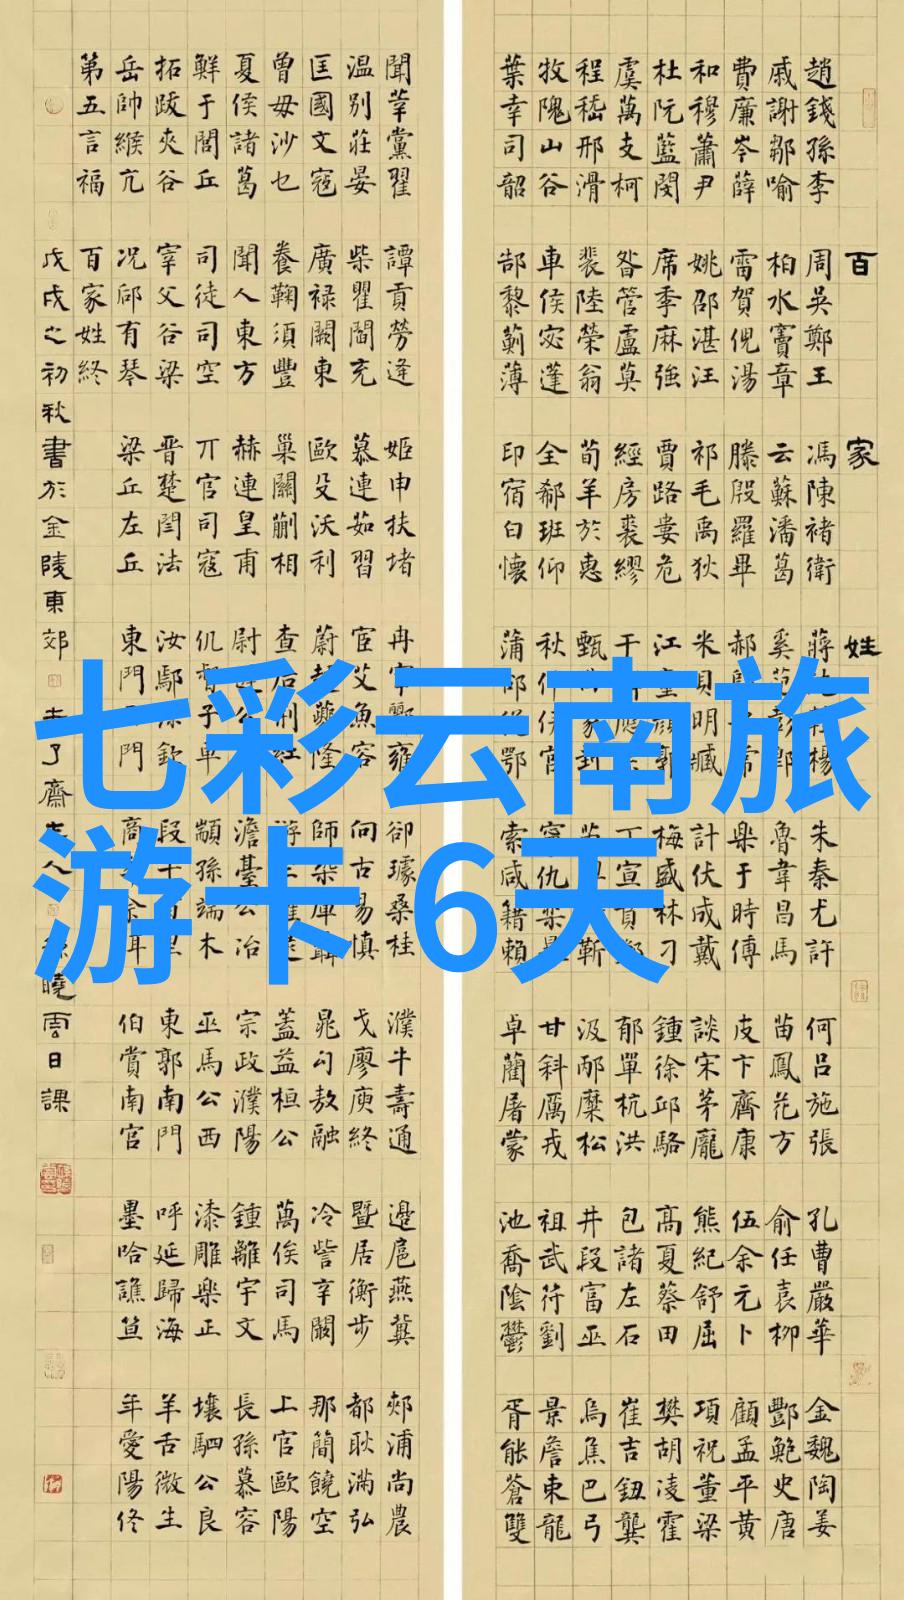 百家姓
趙錢孫李 周吳鄭王 馮陳褚衛 蔣楊 朱秦尤許 何呂施張 孔曹嚴華 金魏陶姜
戚謝鄒喻 柏水竇章 云蘇潘葛 奚范彭郎 魯韋昌馬 苗鳳花方 俞任袁柳 酆鮑史唐
費廉岑薛 雷賀倪湯 滕殷羅畢 郝常 樂于時傅 皮卞齊康 伍余元卜 顧孟平黃
和穆蕭尹 姚邵湛汪 祁毛禹狄 米貝明臧 計伏成戴 談宋茅龐 熊紀舒屈 項祝董梁
杜阮藍閔 席季麻強 賈路婁危 江童顏郭 梅盛林刁 鍾徐邱駱 高夏蔡田 樊胡凌霍
虞萬支柯 昝管盧莫 經房裘繆 干應 丁宣賁鄧 郁單杭洪 包諸左石 崔吉鈕龔
程嵇邢滑 裴陸榮翁 荀羊於惠 甄家封 靳 汲邴糜松 井段富巫 烏焦巴弓
牧隗山谷 車侯宓蓬 全郗班仰 秋仲伊宮 甯仇欒 甘斜厲戎 祖武符劉 景詹束龍
葉幸司韶 郜黎薊薄 印宿白懷 蒲邰從鄂 索咸籍賴 卓藺屠蒙 池喬陰鬱 胥能蒼雙
聞莘黨翟 譚貢勞逄 姬申扶堵 冉宰酈雍 卻璩桑桂 濮牛壽通 邊扈燕冀 郟浦尚農
温別莊晏 柴瞿閻充 慕連茹習 宦艾魚容 向古易慎 戈廖庾終 暨居衡步 都耿滿弘
匡國文寇 廣祿闕東 歐殳沃利 蔚越夔隆 師鞏厙聶 晁勾敖融 冷訾辛闞 那簡饒空
曾毋沙乜 養鞠須豐 巢關蒯相 查后荊紅 游 蓋益桓公 萬俟司馬 上官歐陽
夏侯諸葛 聞人東方 赫連皇甫 尉遲公 澹臺公冶 宗政濮陽 鍾離宇文 長孫慕容
鮮于閭丘 司徒司空 亓官司寇 仉督子車 顓孫端木 巫馬公西 漆雕樂正 壤駟公良
拓跋夾谷 宰父谷梁 晉楚閆法 汝鄢涂欽 段干百里 東郭南門 呼延歸海 羊舌微生
岳帥緱亢 况郈有琴 梁丘左丘 東門門 商 伯賞南宮 墨哈譙笪 年愛陽佟
第五言福 百家姓終
戊戌之初秋書於金陵東郊 未了齋主人孫曉雲日課
七彩云南旅
游卡 6天